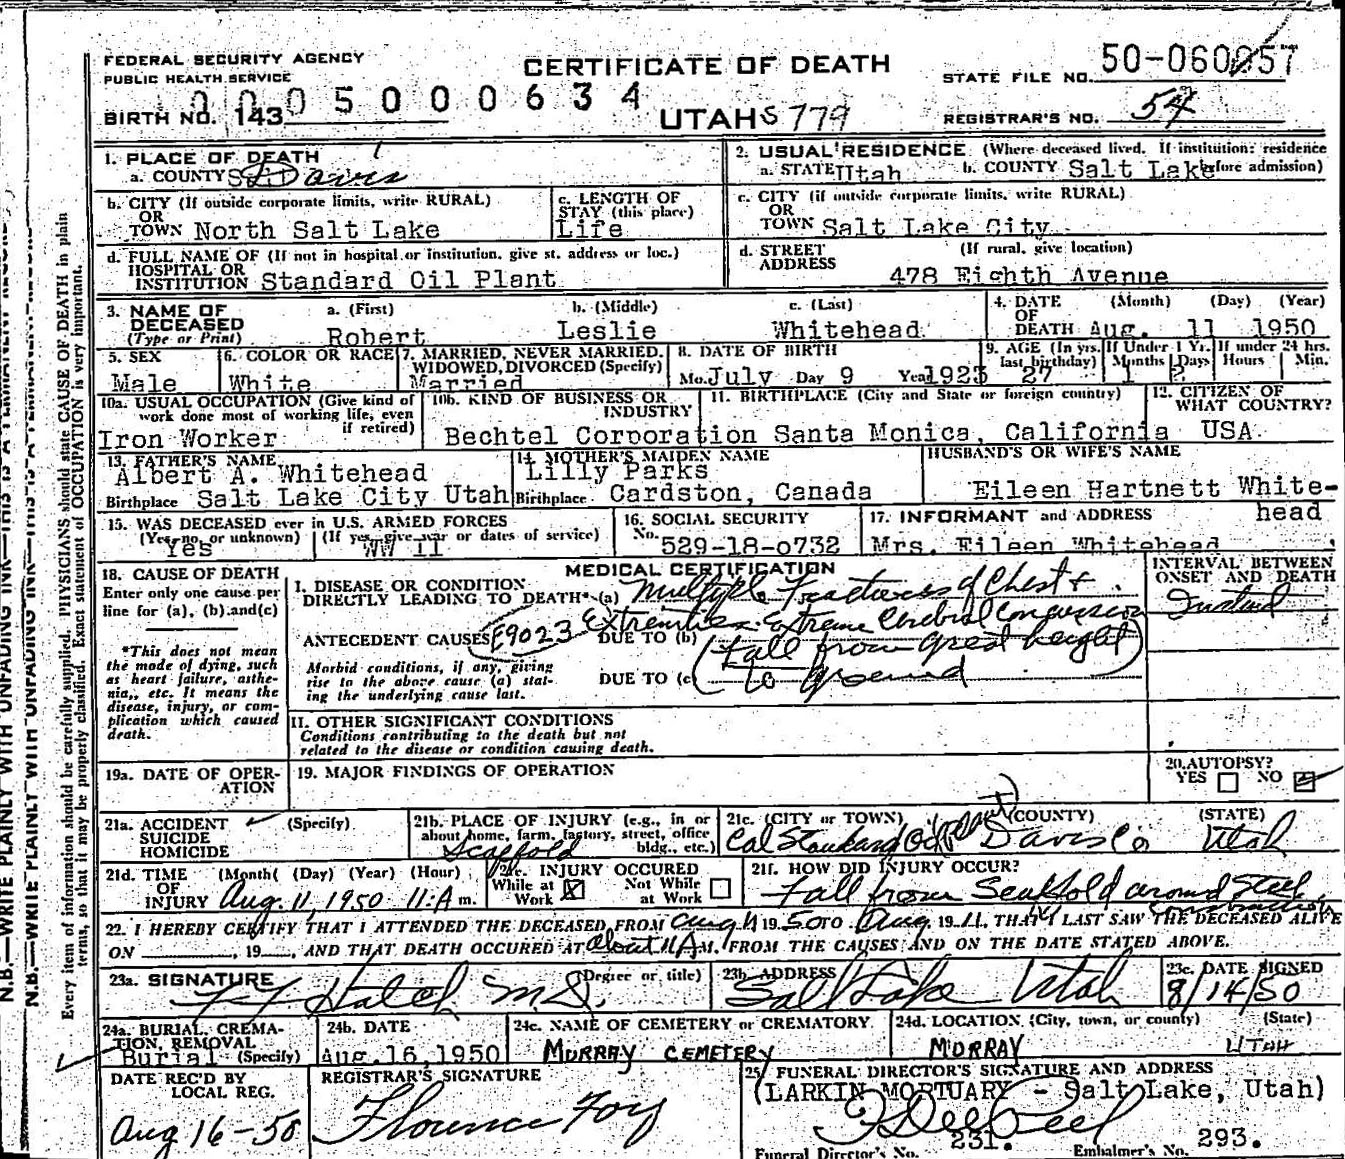 FEDERAL SECURITY AGENCY
PUBLIC HEALTH SERVICE
CERTIFICATE OF DEATH
STATE FILE NO. 50-060057
0005000634
BIRTH NO. 143
UTAH S 779
REGISTRAR'S NO. 54
1. PLACE OF DEATH
a. COUNTY Davis
2. USUAL RESIDENCE (Where deceased lived. If institution: residence before admission)
a. STATE Utah b. COUNTY Salt Lake
b. CITY (If outside corporate limits, write RURAL)
OR
TOWN North Salt Lake
c. LENGTH OF
STAY (this place)
Life
c. CITY (if outside corporate limits, write RURAL)
OR
TOWN Salt Lake City
d. FULL NAME OF (If not in hospital or institution, give st. address or loc.)
HOSPITAL OR
INSTITUTION Standard Oil Plant
d. STREET (If rural, give location)
ADDRESS 478 Eighth Avenue
3. NAME OF DECEASED
(Type or Print)
a. (First) b. (Middle) c. (Last)
Robert Leslie Whitehead
4. DATE OF DEATH (Month) (Day) (Year)
Aug. 11 1950
5. SEX
Male
6. COLOR OR RACE
White
7. MARRIED, NEVER MARRIED,
WIDOWED, DIVORCED (Specify)
Married
8. DATE OF BIRTH
Mo. July Day 9 Year 1923
9. AGE (In yrs. last birthday) 27
If Under 1 Yr. Months 1 Days 2
If under 24 hrs. Hours Min.
10a. USUAL OCCUPATION (Give kind of
work done most of working life, even
if retired)
Iron Worker
10b. KIND OF BUSINESS OR
INDUSTRY
Bechtel Corporation
11. BIRTHPLACE (City and State or foreign country)
Santa Monica, California
12. CITIZEN OF
WHAT COUNTRY?
USA.
13. FATHER'S NAME
Albert A. Whitehead
Birthplace Salt Lake City Utah
14. MOTHER'S MAIDEN NAME
Lilly Parks
Birthplace Cardston, Canada
HUSBAND'S OR WIFE'S NAME
Eileen Hartnett White-
head
15. WAS DECEASED ever in U.S. ARMED FORCES
(Yes, no, or unknown) (If yes, give war or dates of service)
Yes WW II
16. SOCIAL SECURITY
No. 529-18-0732
17. INFORMANT and ADDRESS
Mrs. Eileen Whitehead
18. CAUSE OF DEATH
Enter only one cause per
line for (a), (b), and (c)
*This does not mean
the mode of dying, such
as heart failure, asthe-
nia, etc. It means the
disease, injury, or com-
plication which caused
death.
MEDICAL CERTIFICATION
INTERVAL BETWEEN
ONSET AND DEATH
I. DISEASE OR CONDITION
DIRECTLY LEADING TO DEATH* (a) Multiple Fractures of Chest &
Extremities. Extreme Cerebral Concussion
Instant
ANTECEDENT CAUSES E9023 DUE TO (b) (Fall from great height
Morbid conditions, if any, giving
rise to the above cause (a) stat-
ing the underlying cause last.
DUE TO (c) to ground)
II. OTHER SIGNIFICANT CONDITIONS
Conditions contributing to the death but not
related to the disease or condition causing death.
19a. DATE OF OPER-
ATION
19. MAJOR FINDINGS OF OPERATION
20. AUTOPSY?
YES NO
21a. ACCIDENT (Specify)
SUICIDE
HOMICIDE
21b. PLACE OF INJURY (e.g., in or
about home, farm, factory, street, office
bldg., etc.)
Scaffold
21c. (CITY or TOWN) (COUNTY) (STATE)
Cal Standard Oil Plant Davis Co Utah
21d. TIME (Month) (Day) (Year) (Hour)
OF
INJURY Aug. 11, 1950 11:A m.
21e. INJURY OCCURED
While at Work Not While at Work
21f. HOW DID INJURY OCCUR?
Fall from Scaffold around Steel
22. I HEREBY CERTIFY THAT I ATTENDED THE DECEASED FROM Aug 11 19 50 TO Aug. 19 11, THAT I LAST SAW THE DECEASED ALIVE
ON , 19 , AND THAT DEATH OCCURED AT About 11 A M. FROM THE CAUSES AND ON THE DATE STATED ABOVE.
23a. SIGNATURE (Degree or title)
Hatch M.D.
23b. ADDRESS
Salt Lake Utah
23c. DATE SIGNED
8/14/50
24a. BURIAL, CREMA-
TION, REMOVAL
Burial (Specify)
24b. DATE
Aug. 16, 1950
24c. NAME OF CEMETERY or CREMATORY
MURRAY CEMETERY
24d. LOCATION (City, town, or county) (State)
MURRAY UTAH
DATE REC'D BY
LOCAL REG.
Aug 16-50
REGISTRAR'S SIGNATURE
Florence Foy
25. FUNERAL DIRECTOR'S SIGNATURE AND ADDRESS
(LARKIN MORTUARY - Salt Lake, Utah)
Funeral Director's No. 231. Embalmer's No. 293.
N.B.—WRITE PLAINLY WITH UNFADING INK—THIS IS A PERMANENT RECORD
Every item of information should be carefully supplied. PHYSICIANS should state CAUSE OF DEATH in plain
terms, so that it may be properly classified. Exact statement of OCCUPATION is very important.